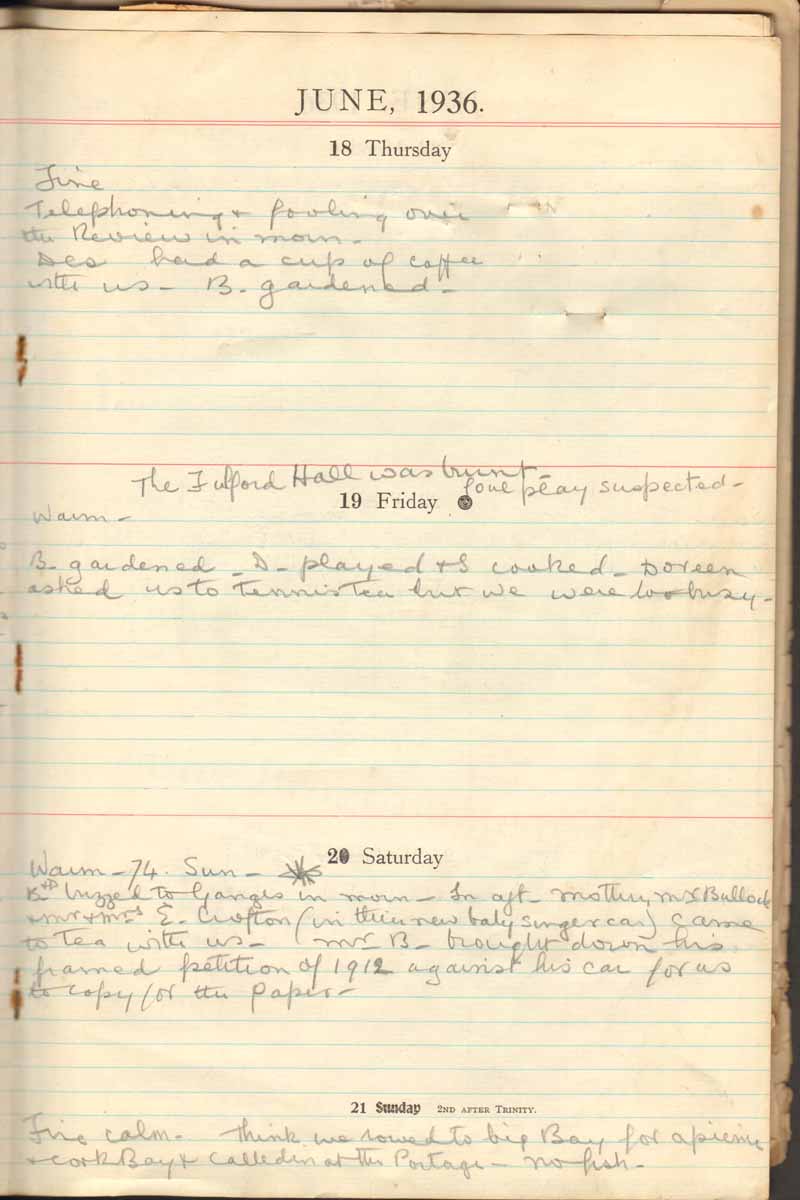 JUNE, 1936.
18 Thursday
Fine
Telephoning & fooling over
the Review in morn.
Des had a cup of coffee
with us - B. gardened -
The Fulford Hall was burnt -
foul play suspected -
19 Friday
Warm -
B. gardened - D - played & S cooked - Doreen
asked us to tennis tea but we were too busy -
20 Saturday
Warm - 74. Sun -
buzzed to Ganges in morn - In aft - mother, Mr Bullock
& Mr & Mrs E. Crofton (in their new baby singer car) came
to tea with us - Mr B - brought down his
framed petition of 1912 against his car for us
to copy for the Paper -
21 Sunday 2ND AFTER TRINITY.
Fine calm - Think we rowed to big Bay for a picnic
& Bay & called in at the Portage - no fish -